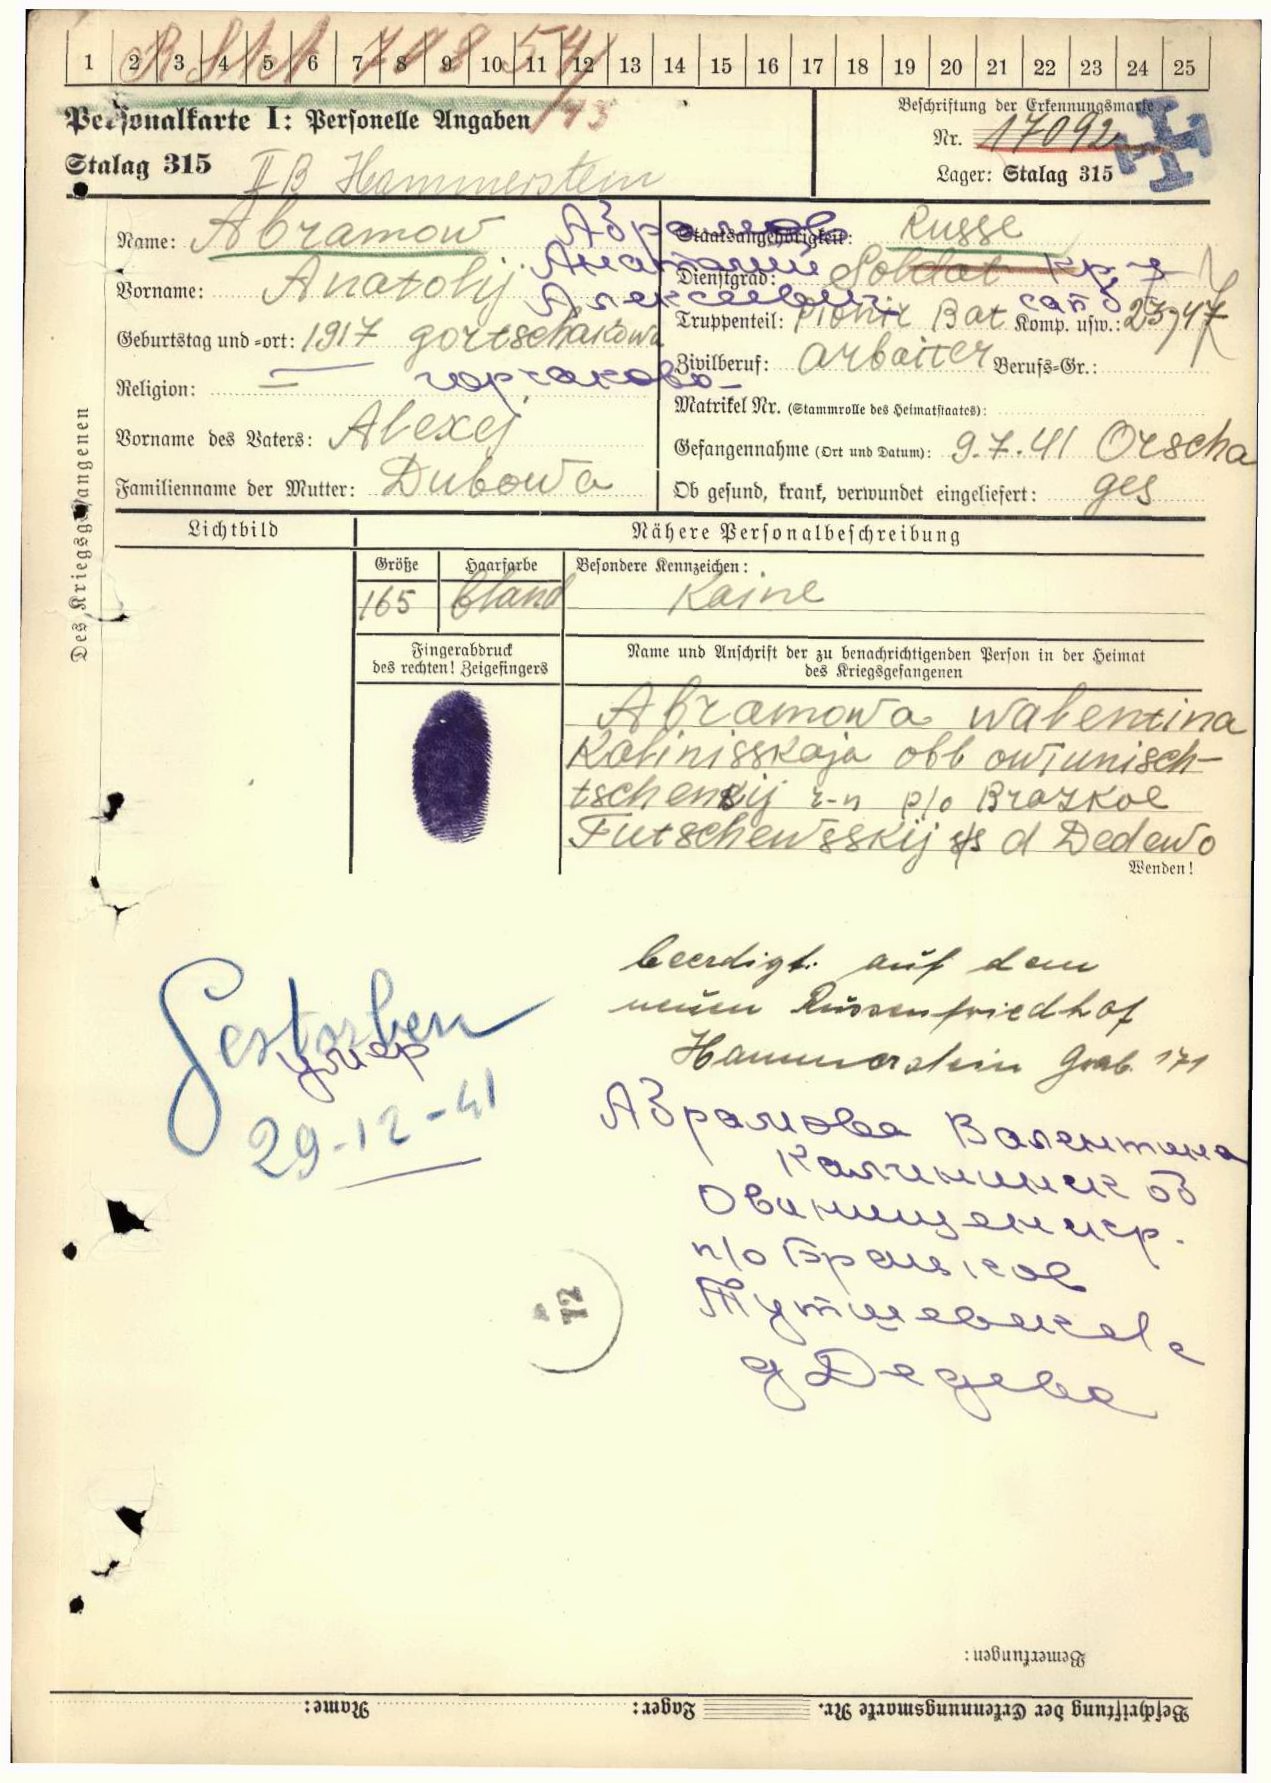 1 2 3 4 5 6 7 8 9 10 11 12 13 14 15 16 17 18 19 20 21 22 23 24 25
Personalkarte I: Personelle Angaben
Stalag 315
II B Hammerstein
Beschriftung der Erkennungsmarke
Nr. 17092
Lager: Stalag 315
Des Kriegsgefangenen
Name: Abramow Абрамов
Vorname: Anatolij Анатолий
Алексеевич
Geburtstag und -ort: 1917 gortschakowa
Religion: =
горчаково
Vorname des Vaters: Alexej
Familienname der Mutter: Dubowa
Staatsangehörigkeit: Russe
Dienstgrad: Soldat кр-ц
Truppenteil: Pionir Bat сапб Komp. usw.:
Zivilberuf: arbaiter Berufs-Gr.:
Matrikel Nr. (Stammrolle des Heimatstaates):
Gefangennahme (Ort und Datum): 9.7.41 Orscha
Ob gesund, krank, verwundet eingeliefert: ges
Lichtbild
Nähere Personalbeschreibung
Größe Haarfarbe Besondere Kennzeichen:
165 bland Kaine
Fingerabdruck
des rechten! Zeigefingers
Name und Anschrift der zu benachrichtigenden Person in der Heimat
des Kriegsgefangenen
Abramowa walentina
Kalinisskaja obl owtunisch-
tschenskij r-n p/o Brazkoe
Tutschewsskij s/s d Dedewo
Wenden!
beerdigt auf dem
neuen Russenfriedhof
Hammerstein Grab. 171
Gestorben
умер
29-12-41
Абрамова Валентина
Калининск об
Овинищенскр.
п/о Брацкое
Тутшевскel с
д Дедева
12
Bemerkungen:
Beschriftung der Erkennungsmarke Nr. Lager: Name: